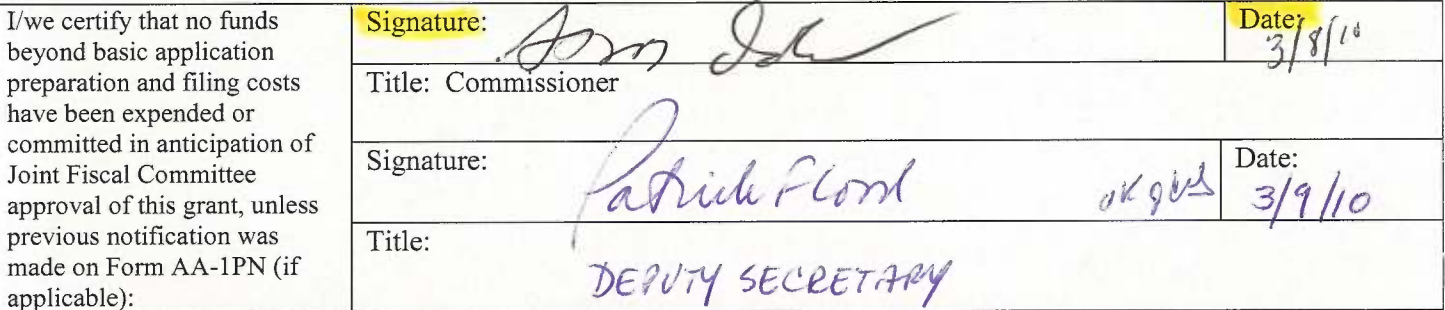 I/we certify that no funds
beyond basic application
preparation and filing costs
have been expended or
committed in anticipation of
Joint Fiscal Committee
approval of this grant, unless
previous notification was
made on Form AA-1PN (if
applicable):
Signature:
Date:
3/8/10
Title: Commissioner
Signature: Patrick Flood
Date:
3/9/10
Title:
DEPUTY SECRETARY